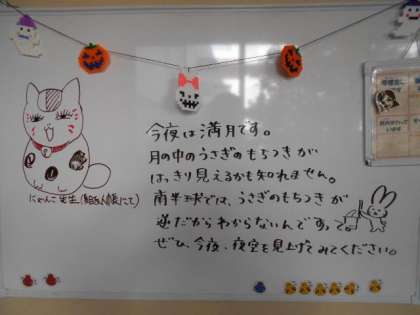 今夜は満月です。
月の中のうさぎのもちつきが
はっきり見えるかも知れません。
南半球では、うさぎのもちつきが
逆だからわからないんですって。
ぜひ、今夜、夜空を見上げてみてください。
にゃんこ先生(夏目友人帳にて)